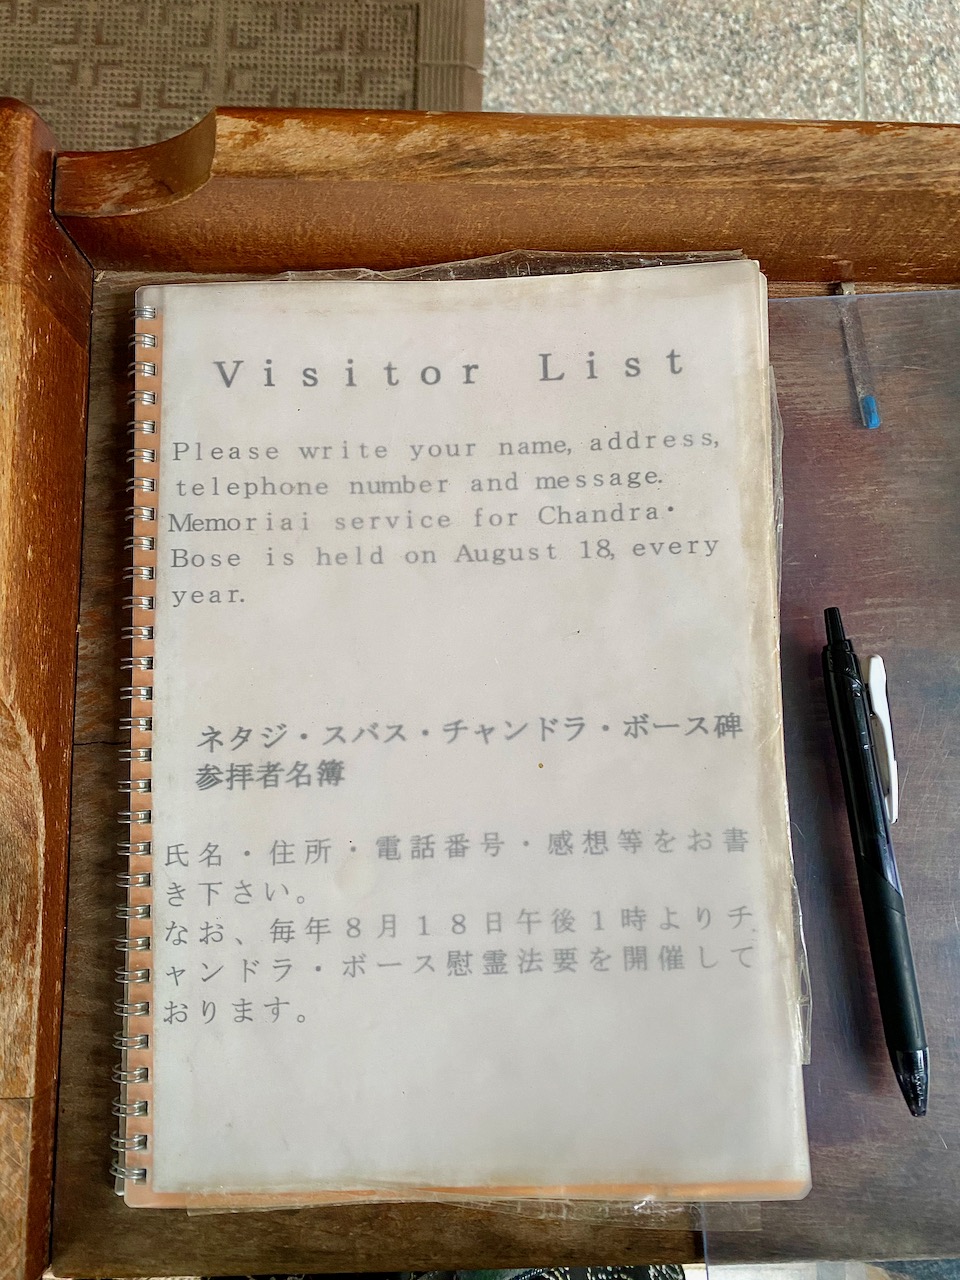 Visitor List
Please write your name, address,
telephone number and message.
Memoriai service for Chandra・
Bose is held on August 18, every
year.
ネタジ・スバス・チャンドラ・ボース碑
参拝者名簿
氏名・住所・電話番号・感想等をお書
き下さい。
なお、毎年８月１８日午後１時よりチ
ャンドラ・ボース慰霊法要を開催して
おります。